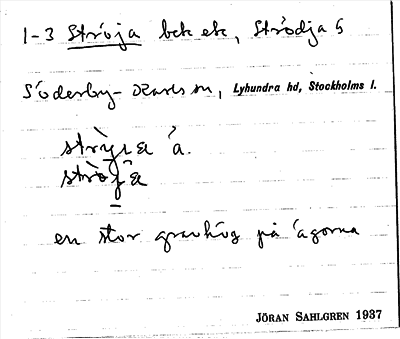 1-3 Ströja bek ek, Strödja 5
Söderby-Karls sn, Lyhundra hd, Stockholms l.
å.
en stor gravhög på ägorna
JÖRAN SAHLGREN 1937